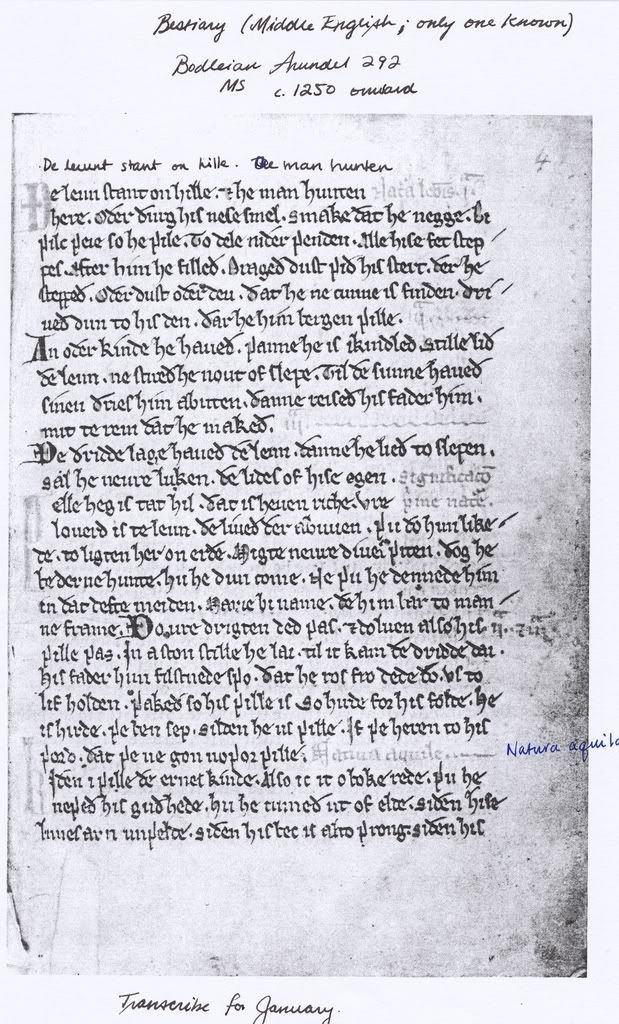 Bestiary (Middle English; only one known)
Bodleian Arundel 292
MS c. 1250 onward
4
De leunt stant on hille. De man hunten
Ðe leun stant on hille. ⁊ he man hunten Natura leonis. i.
here. Oðer ðurg his nese smel. Smake ðat he negge. Bi
ƿilc ƿeie so he ƿile. To dele niðer ƿenden. Alle hise fet step
pes. After him he filleð. Drageð dust ƿið his stert. ðer he
steppeð. Oðer dust oðer deu. ðat he ne cunne is finden. dri
ueð dun to his den. ðar he him bergen ƿille.
An oðer kinde he haueð. ƿanne he is ikindled. Stille lið
ðe leun. ne stireð he nout of slepe. Til ðe sunne haueð
sinen ðries him abuten. ðanne reiseð his fader him.
mit te rem ðat he makeð. iii
Ðe ðridde lage haueð ðe leun. ðanne he lieð to slepen.
sal he neure luken. ðe lides of hise egen. Significatio
elle heg is tat hil. ðat is heuen riche. Vre prime nature
louerd is te leun. ðe liueð ðer abuuen. ƿu ðo him like
de. to ligten her on erðe. Migte neure diuel ƿiten. ðog he
be derne hunte. hu he dun come. Ne ƿu he dennede him
in ðat defte meiden. Marie bi name. ðe him bar to man
ne frame. Ðo ure drigten ded ƿas. ⁊ doluen also his ii. ⁊ iii.
ƿille ƿas. In a ston stille he lai. til it kam ðe dridde dai.
His fader him filstnede sƿo. ðat he ros fro dede ðo. vs to
lif holden. ƿakeð so his ƿille is. So hirde for his folde. He
is hirde. ƿe ben sep. silden he us ƿille. If ƿe heren to his
ƿord. ðat ƿe ne gon noƿor ƿille. Natura aquile.
Natura aquila
iðen i ƿille ðe ernes kinde. Also ic it o boke rede. ƿu he
neƿeð his guðhede. hu he cumeð ut of elde. siðen hise
limes arn unƿelde. siðen his bec is alto ƿrong. siðen his
Transcribe for January.